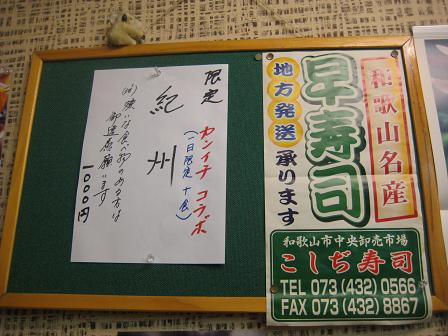 限定
カンイチ コラボ
(一日限定 十食)
紀州
(注) 嫌いな食べ物のある方は
御遠慮願います
1000円
和歌山名産
早寿司
地方発送承ります
和歌山市中央卸売市場
こしぢ寿司
TEL 073 (432) 0566
FAX 073 (432) 8867